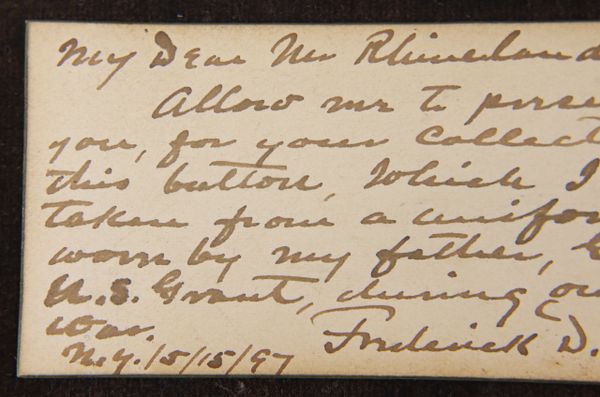 My Dear Mr Rhineland
Allow me to prese
you, for your Collect
this button, Which I
taken from a unifor
worn by my father, G
U.S. Grant, during ou
war.
Frederick D.
N.Y. 15/15/97